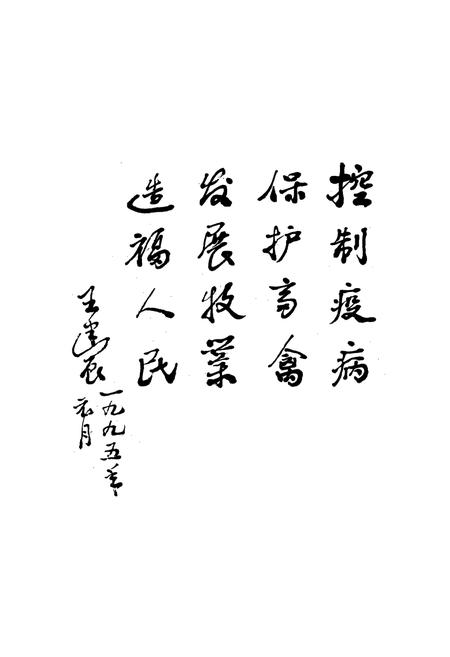 控制疫病
保护畜禽
发展牧业
造福人民
王建辰
一九九五年
元月